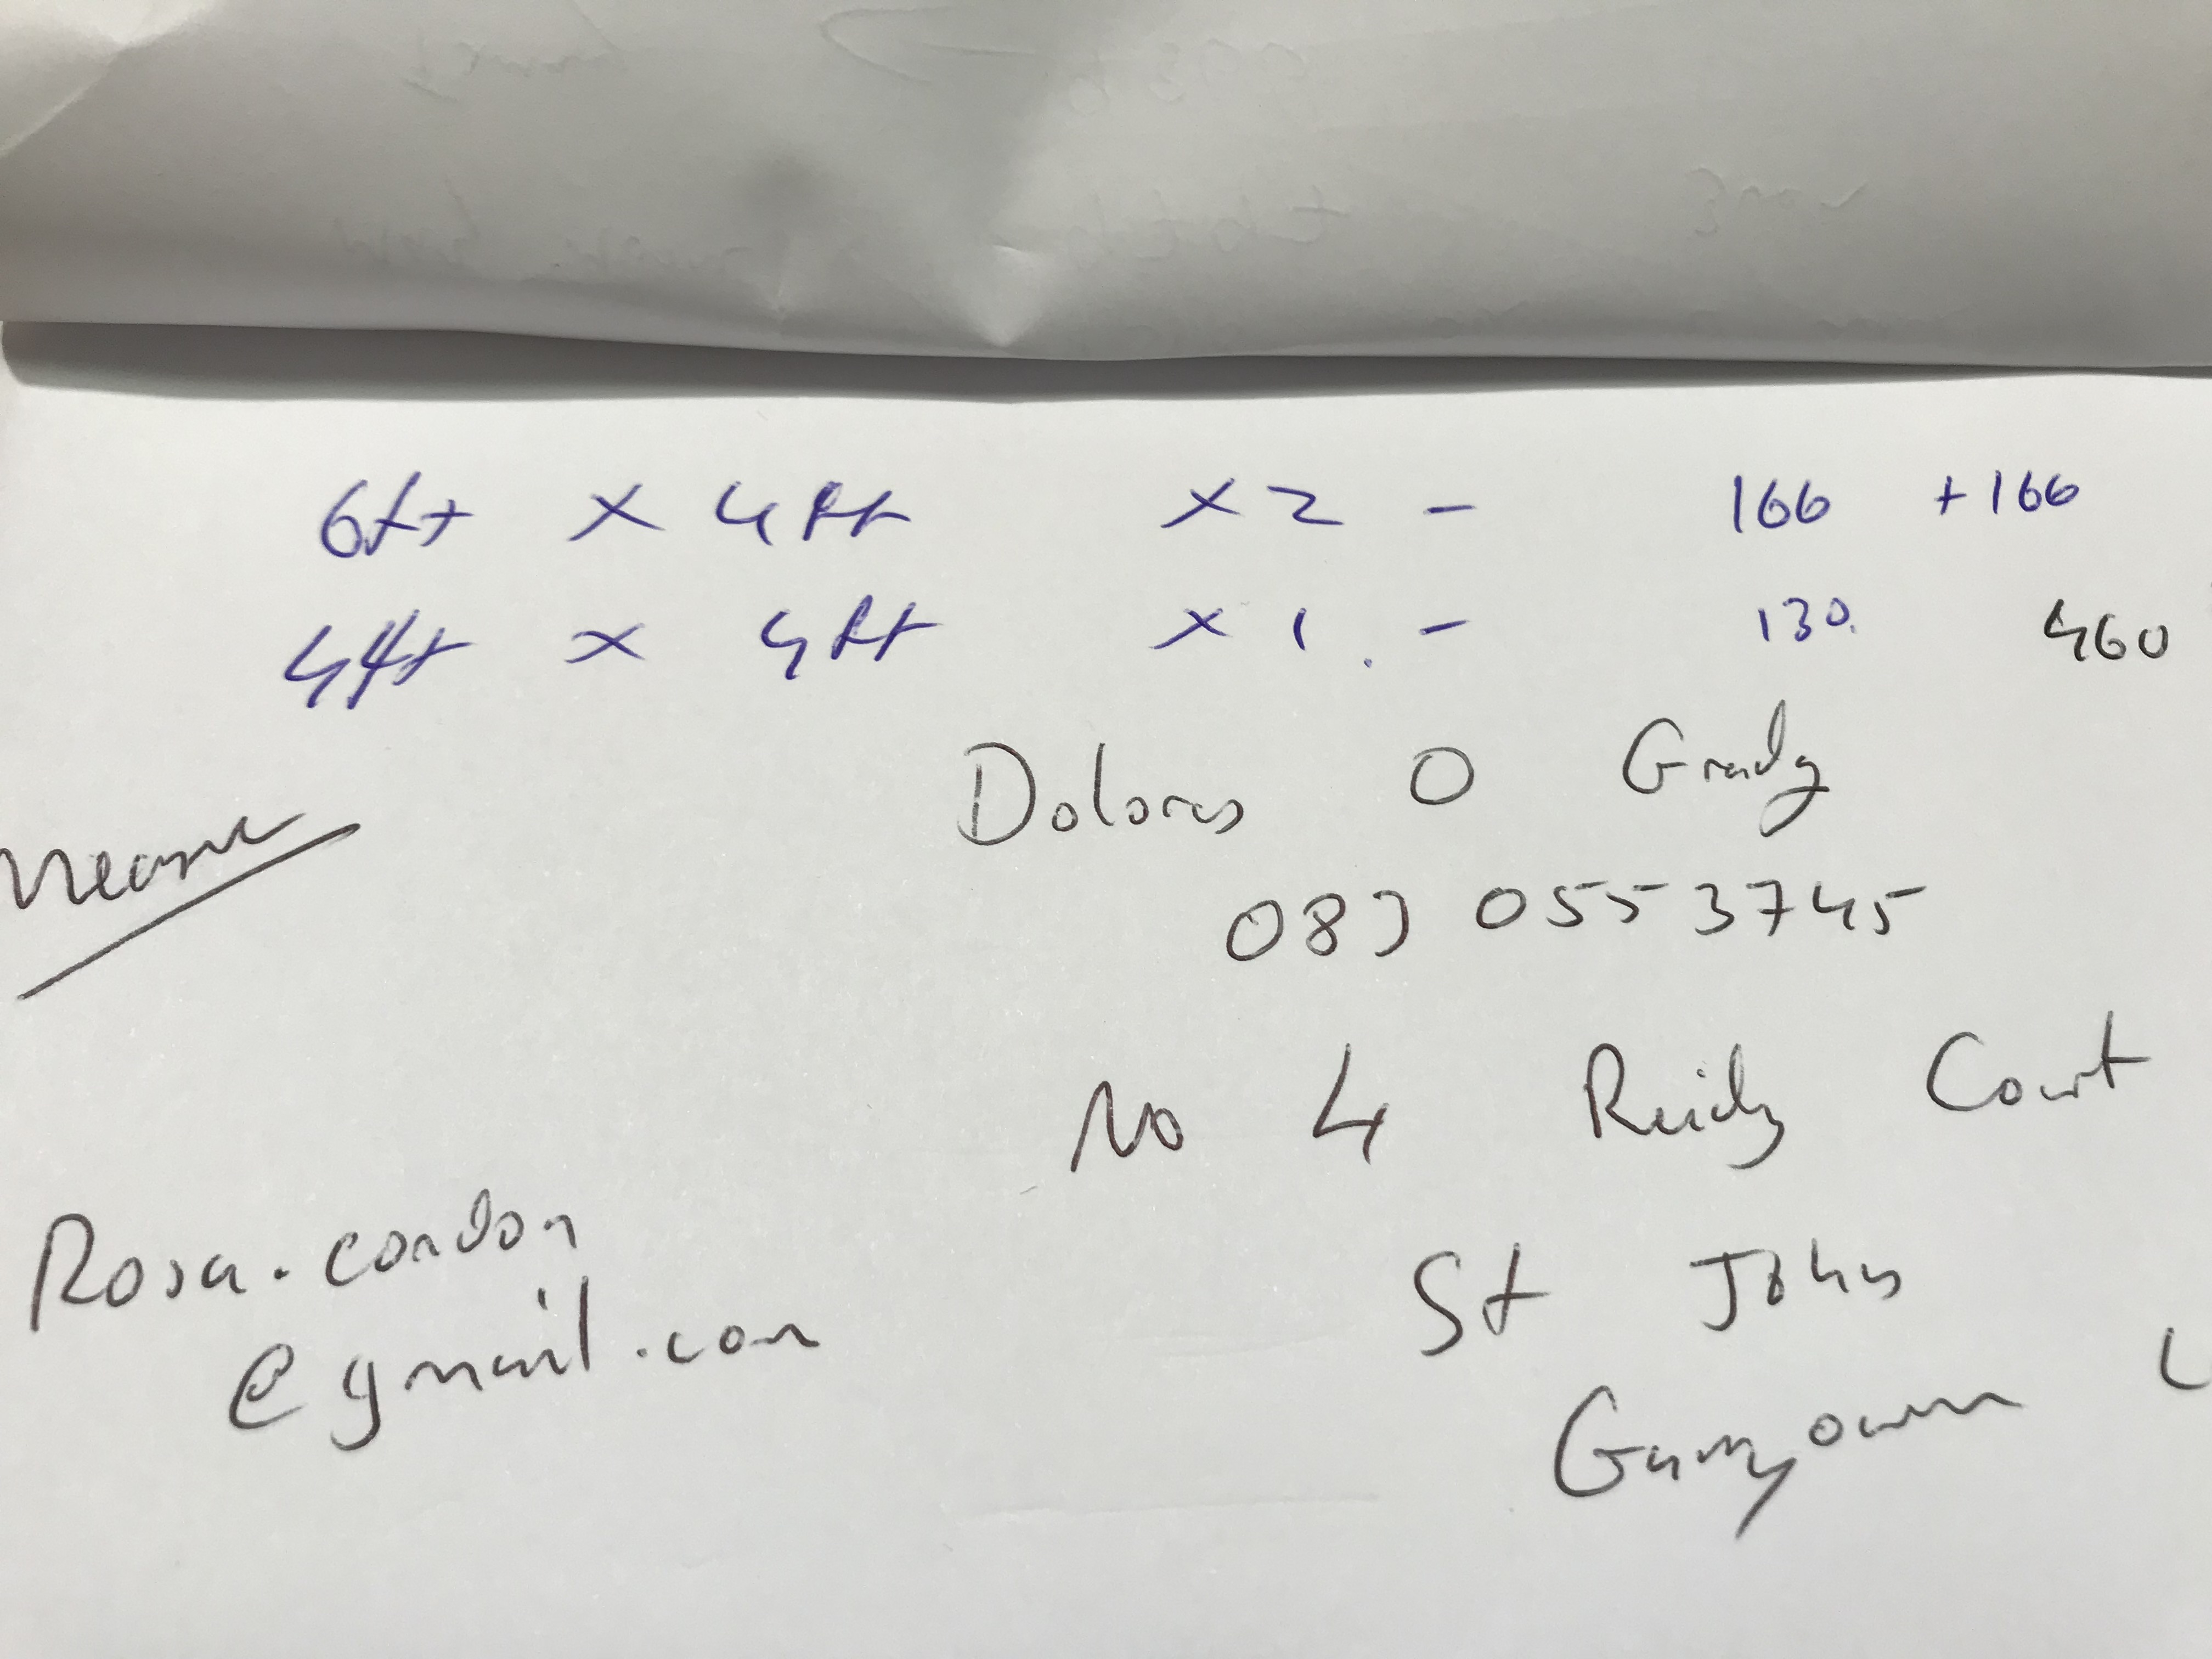 6ft x 4ft x 2 - 166 + 166
4ft x 4ft x 1. - 130. 460
Dolores O Grady
Measure
083 0553745
No 4 Reidy Court
Rosa.condon
St Johns
@gmail.com
Garryowen L